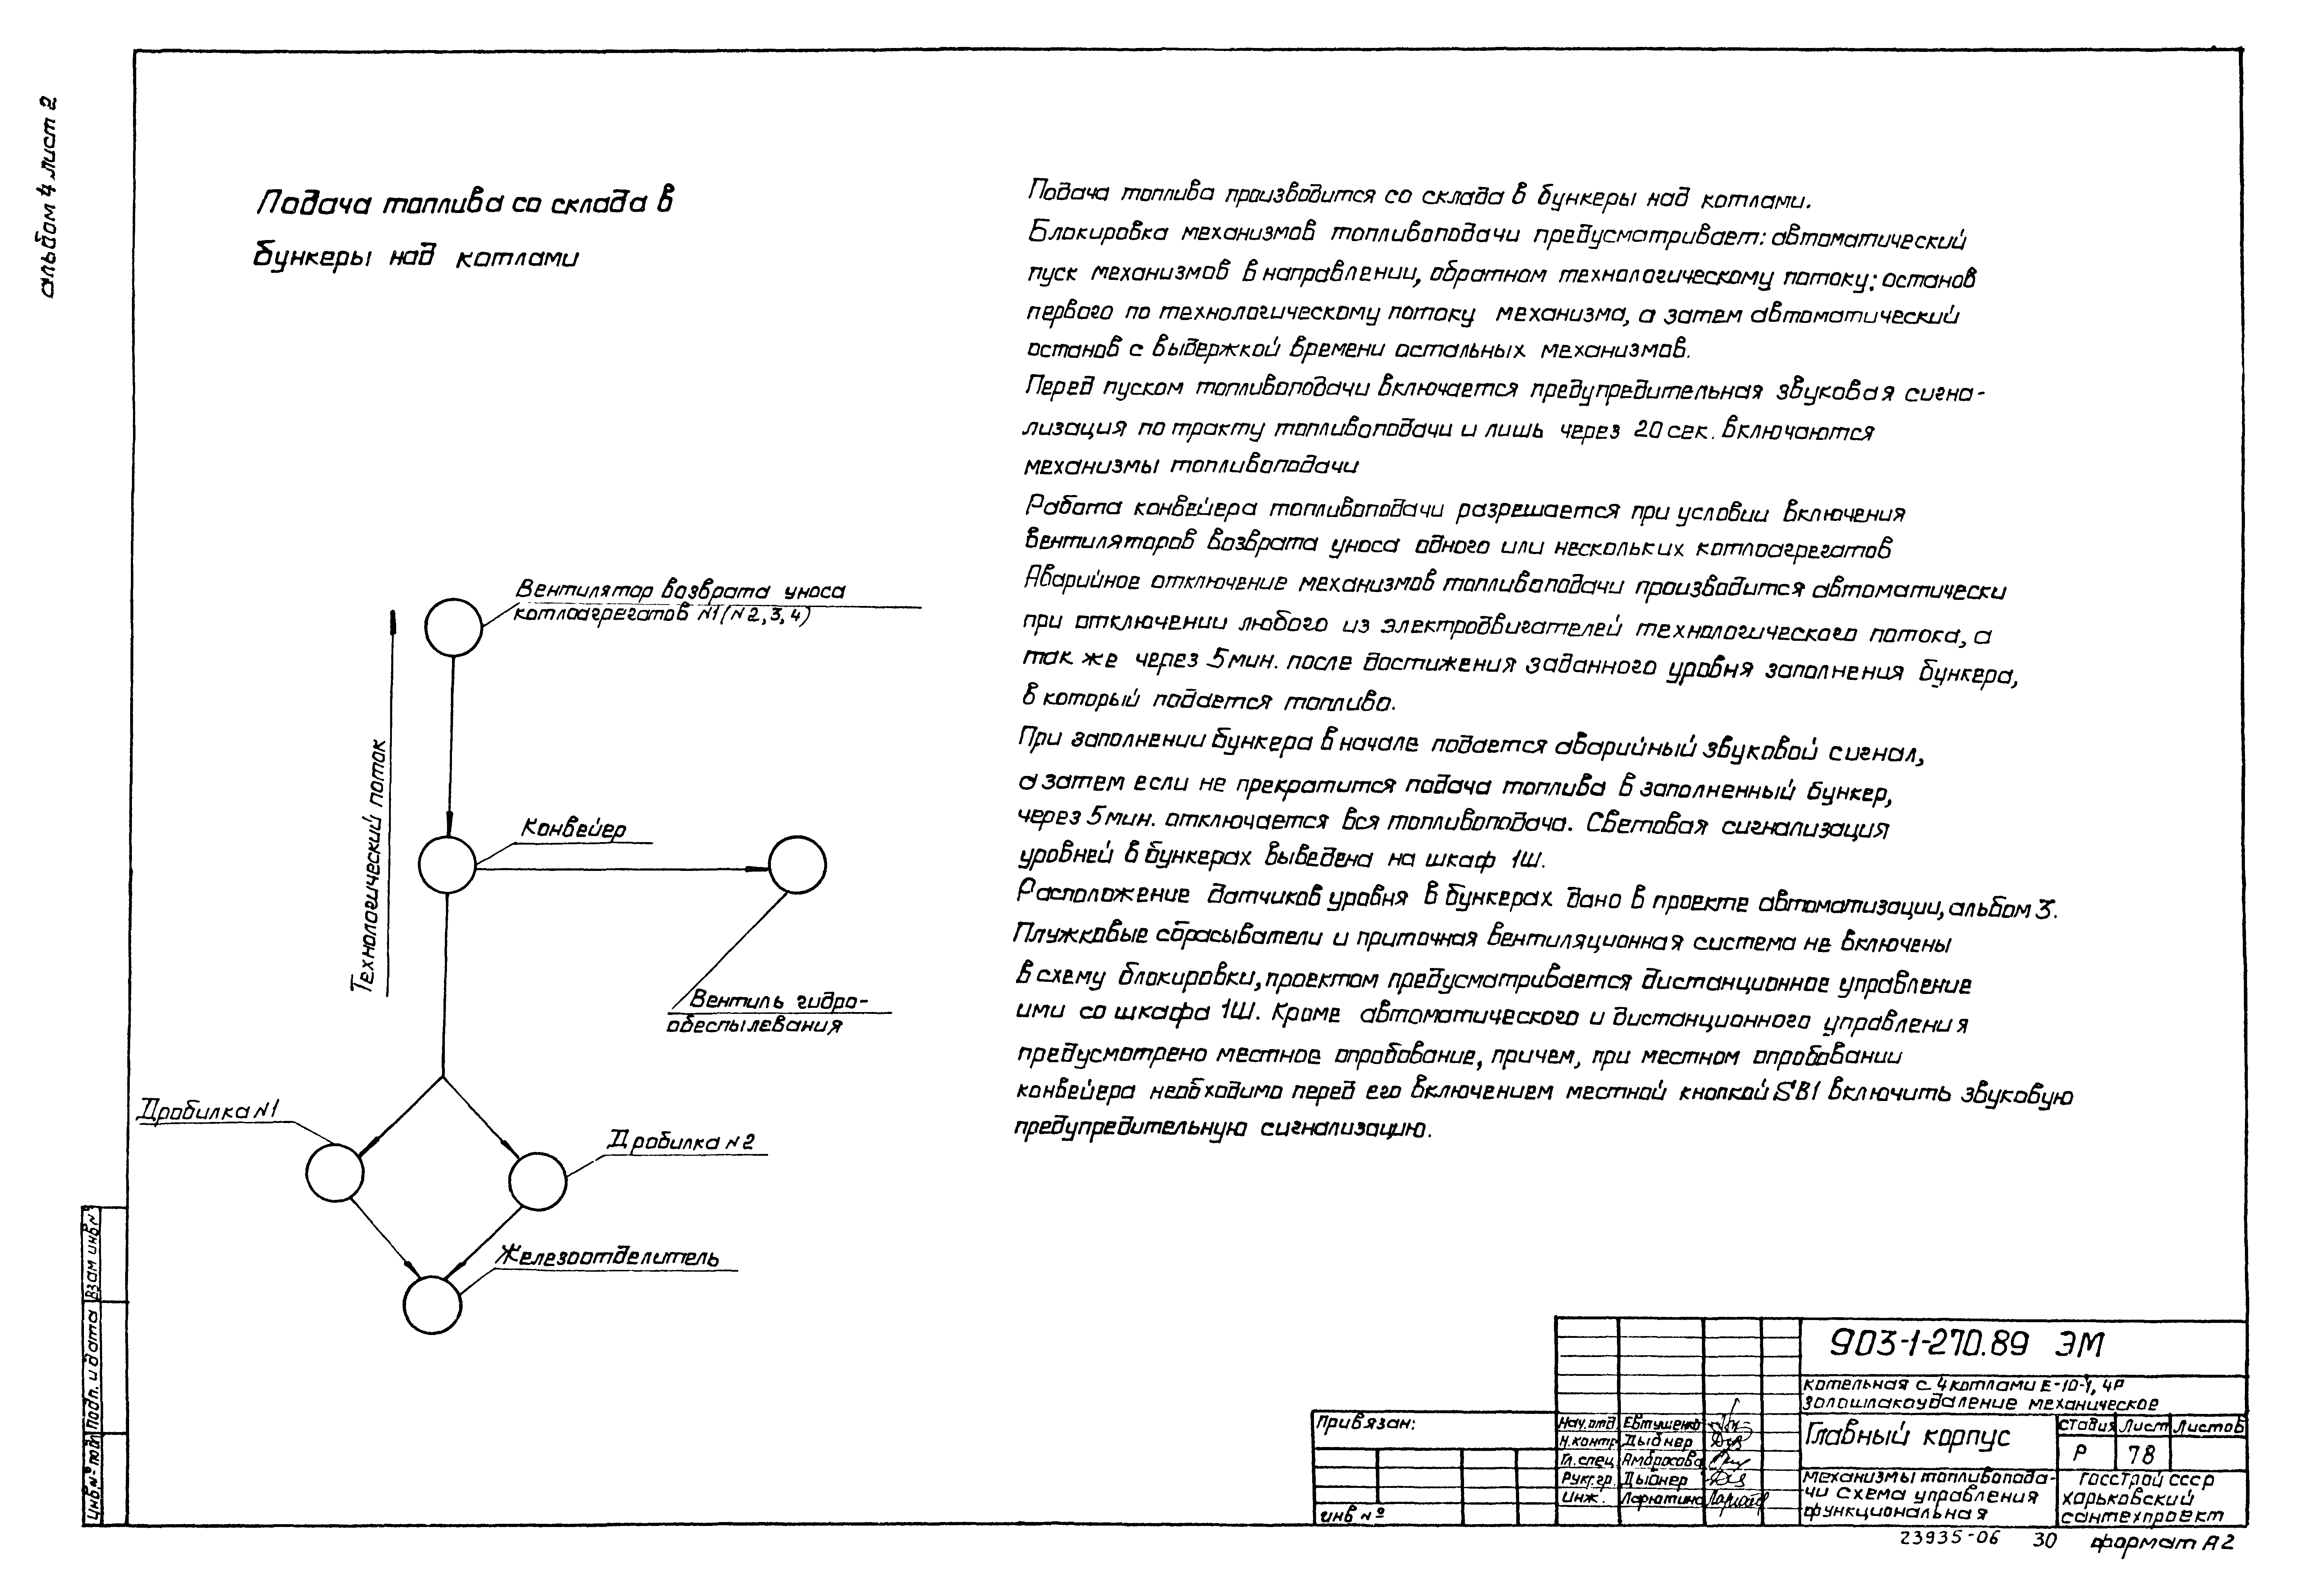 альбом 4 лист 2
Подача топлива со склада в
бункеры над котлами
Вентилятор возврата уноса
котлоагрегатов N1 (N2, 3, 4)
Технологический поток
Конвейер
Вентиль гидро-
обеспылевания
Дробилка N1
Дробилка N2
Железоотделитель
Подача топлива производится со склада в бункеры над котлами.
Блокировка механизмов топливоподачи предусматривает: автоматический
пуск механизмов в направлении, обратном технологическому потоку; останов
первого по технологическому потоку механизма, а затем автоматический
останов с выдержкой времени остальных механизмов.
Перед пуском топливоподачи включается предупредительная звуковая сигна-
лизация по тракту топливоподачи и лишь через 20 сек. включаются
механизмы топливоподачи
Работа конвейера топливоподачи разрешается при условии включения
вентиляторов возврата уноса одного или нескольких котлоагрегатов
Аварийное отключение механизмов топливоподачи производится автоматически
при отключении любого из электродвигателей технологического потока, а
так же через 5 мин. после достижения заданного уровня заполнения бункера,
в который подается топливо.
При заполнении бункера в начале подается аварийный звуковой сигнал,
а затем если не прекратится подача топлива в заполненный бункер,
через 5 мин. отключается вся топливоподача. Световая сигнализация
уровней в бункерах выведена на шкаф 1Ш.
Расположение датчиков уровня в бункерах дано в проекте автоматизации, альбом 3.
Плужковые сбрасыватели и приточная вентиляционная система не включены
в схему блокировки, проектом предусматривается дистанционное управление
ими со шкафа 1Ш. Кроме автоматического и дистанционного управления
предусмотрено местное опробование, причем, при местном опробовании
конвейера необходимо перед его включением местной кнопкой SB1 включить звуковую
предупредительную сигнализацию.
Взам инв N
Подп. и дата
Инв. N° подл
Привязан:
инв N°
903-1-270.89 ЭМ
котельная с 4 котлами Е-10-1,4Р
золошлакоудаление механическое
Нач. отд. Евтушенко
Н. контр Дыбнер
Гл. спец. Амбросова
Рук. гр. Дыбнер
Инж. Ларютина
Главный корпус
Стадия Лист Листов
Р 78
механизмы топливопода-
чи схема управления
функциональная
Госстрой СССР
Харьковский
сантехпроект
23935-06 30 формат А2